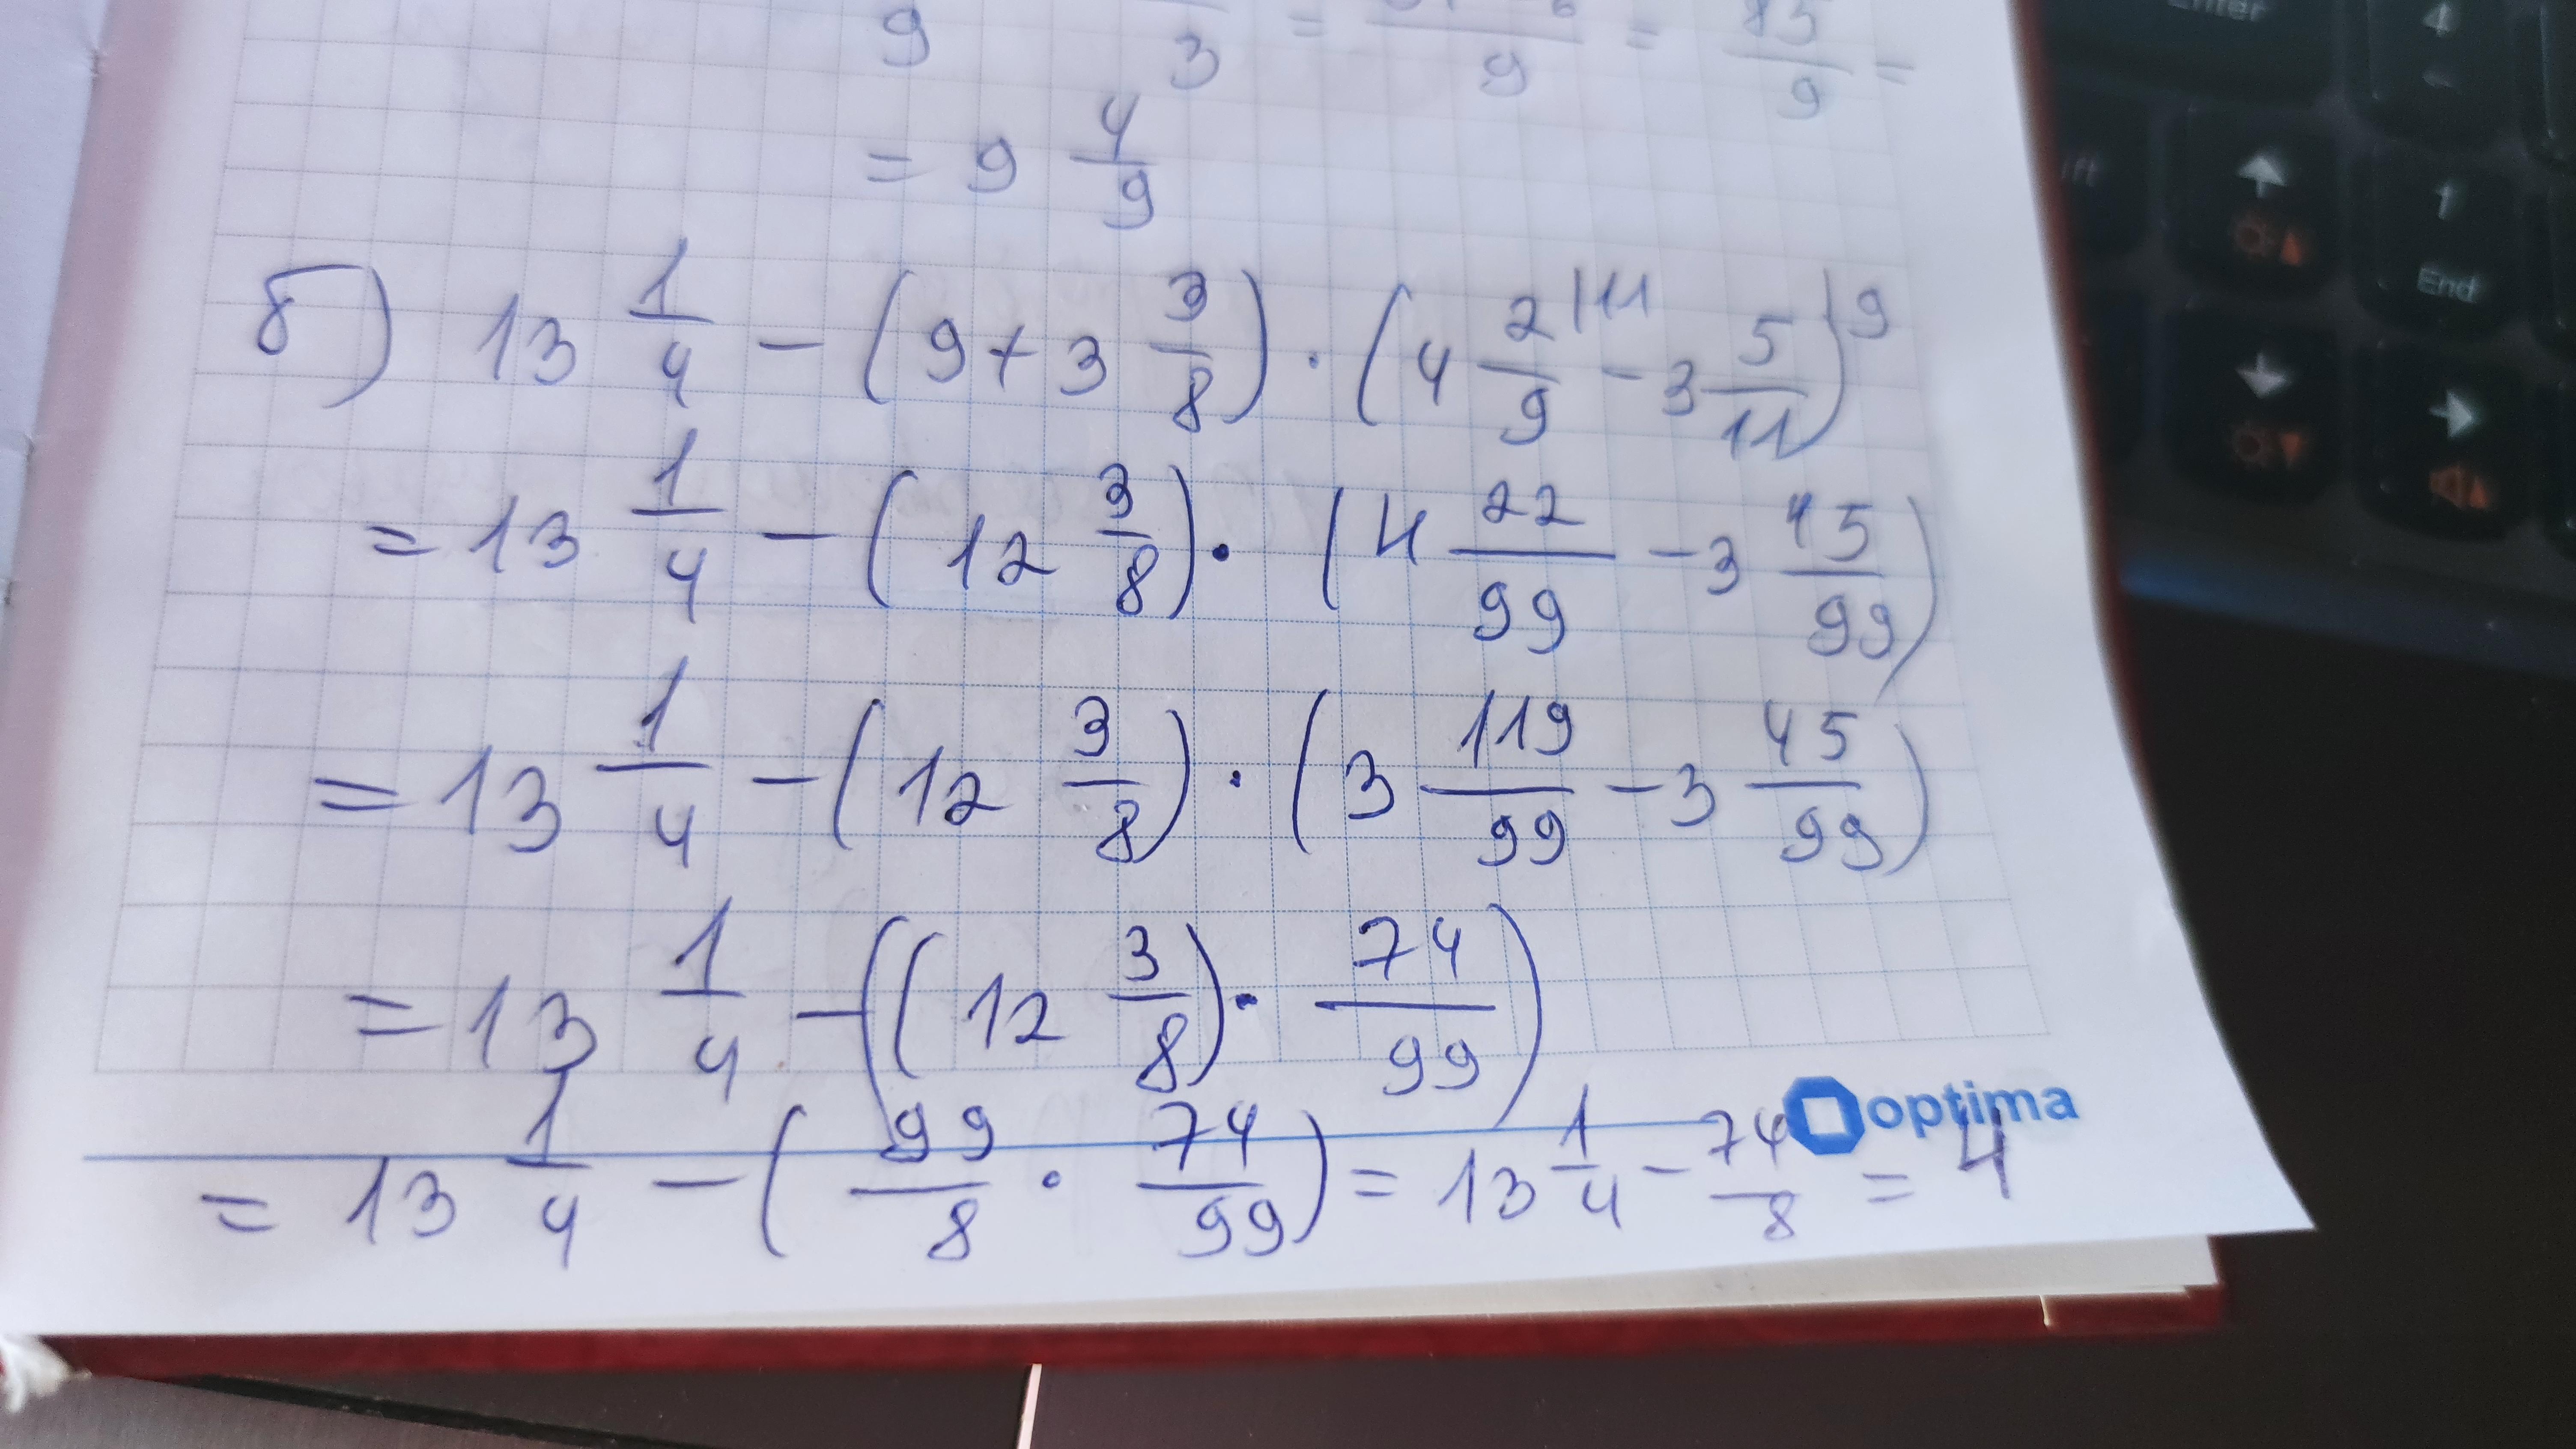 9 3 = 9 = 85/9 =
= 9 4/9
б) 13 1/4 - (9 + 3 3/8) · (4 2/9 |11 - 3 5/11) |9
= 13 1/4 - (12 3/8) · (4 22/99 - 3 45/99)
= 13 1/4 - (12 3/8) · (3 119/99 - 3 45/99)
= 13 1/4 - ((12 3/8) · 74/99)
optima
= 13 1/4 - (99/8 · 74/99) = 13 1/4 - 74/8 = 4
Enter
4
1
End